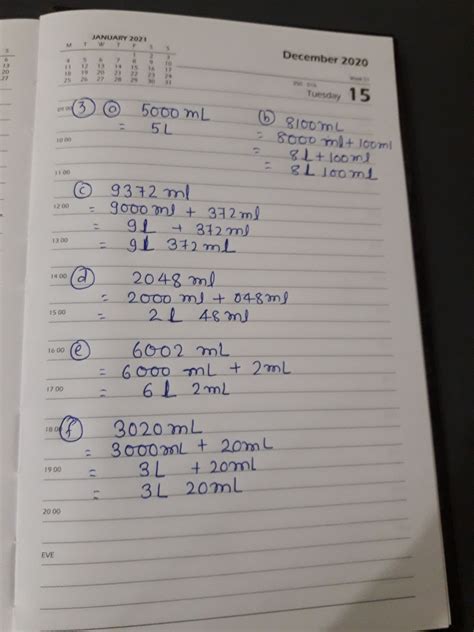 JANUARY 2021
M T W T F S S
1 2 3
4 5 6 7 8 9 10
11 12 13 14 15 16 17
18 19 20 21 22 23 24
25 26 27 28 29 30 31
December 2020
Week 51
Tuesday 15
09:00
③ ⓐ 5000 mL
= 5L
ⓑ 8100mL
= 8000 ml + 100ml
= 8L + 100ml
= 8L 100ml
10:00
11:00
ⓒ 9372 ml
12:00
= 9000ml + 372ml
= 9L + 372ml
13:00
= 9L 372ml
14:00
ⓓ 2048 ml
= 2000 ml + 048ml
15:00
= 2l 48ml
16:00
ⓔ 6002 mL
= 6000 mL + 2mL
17:00
= 6l 2mL
18:00
ⓕ 3020mL
= 3000mL + 20mL
19:00
= 3L + 20mL
= 3L 20mL
20:00
EVE